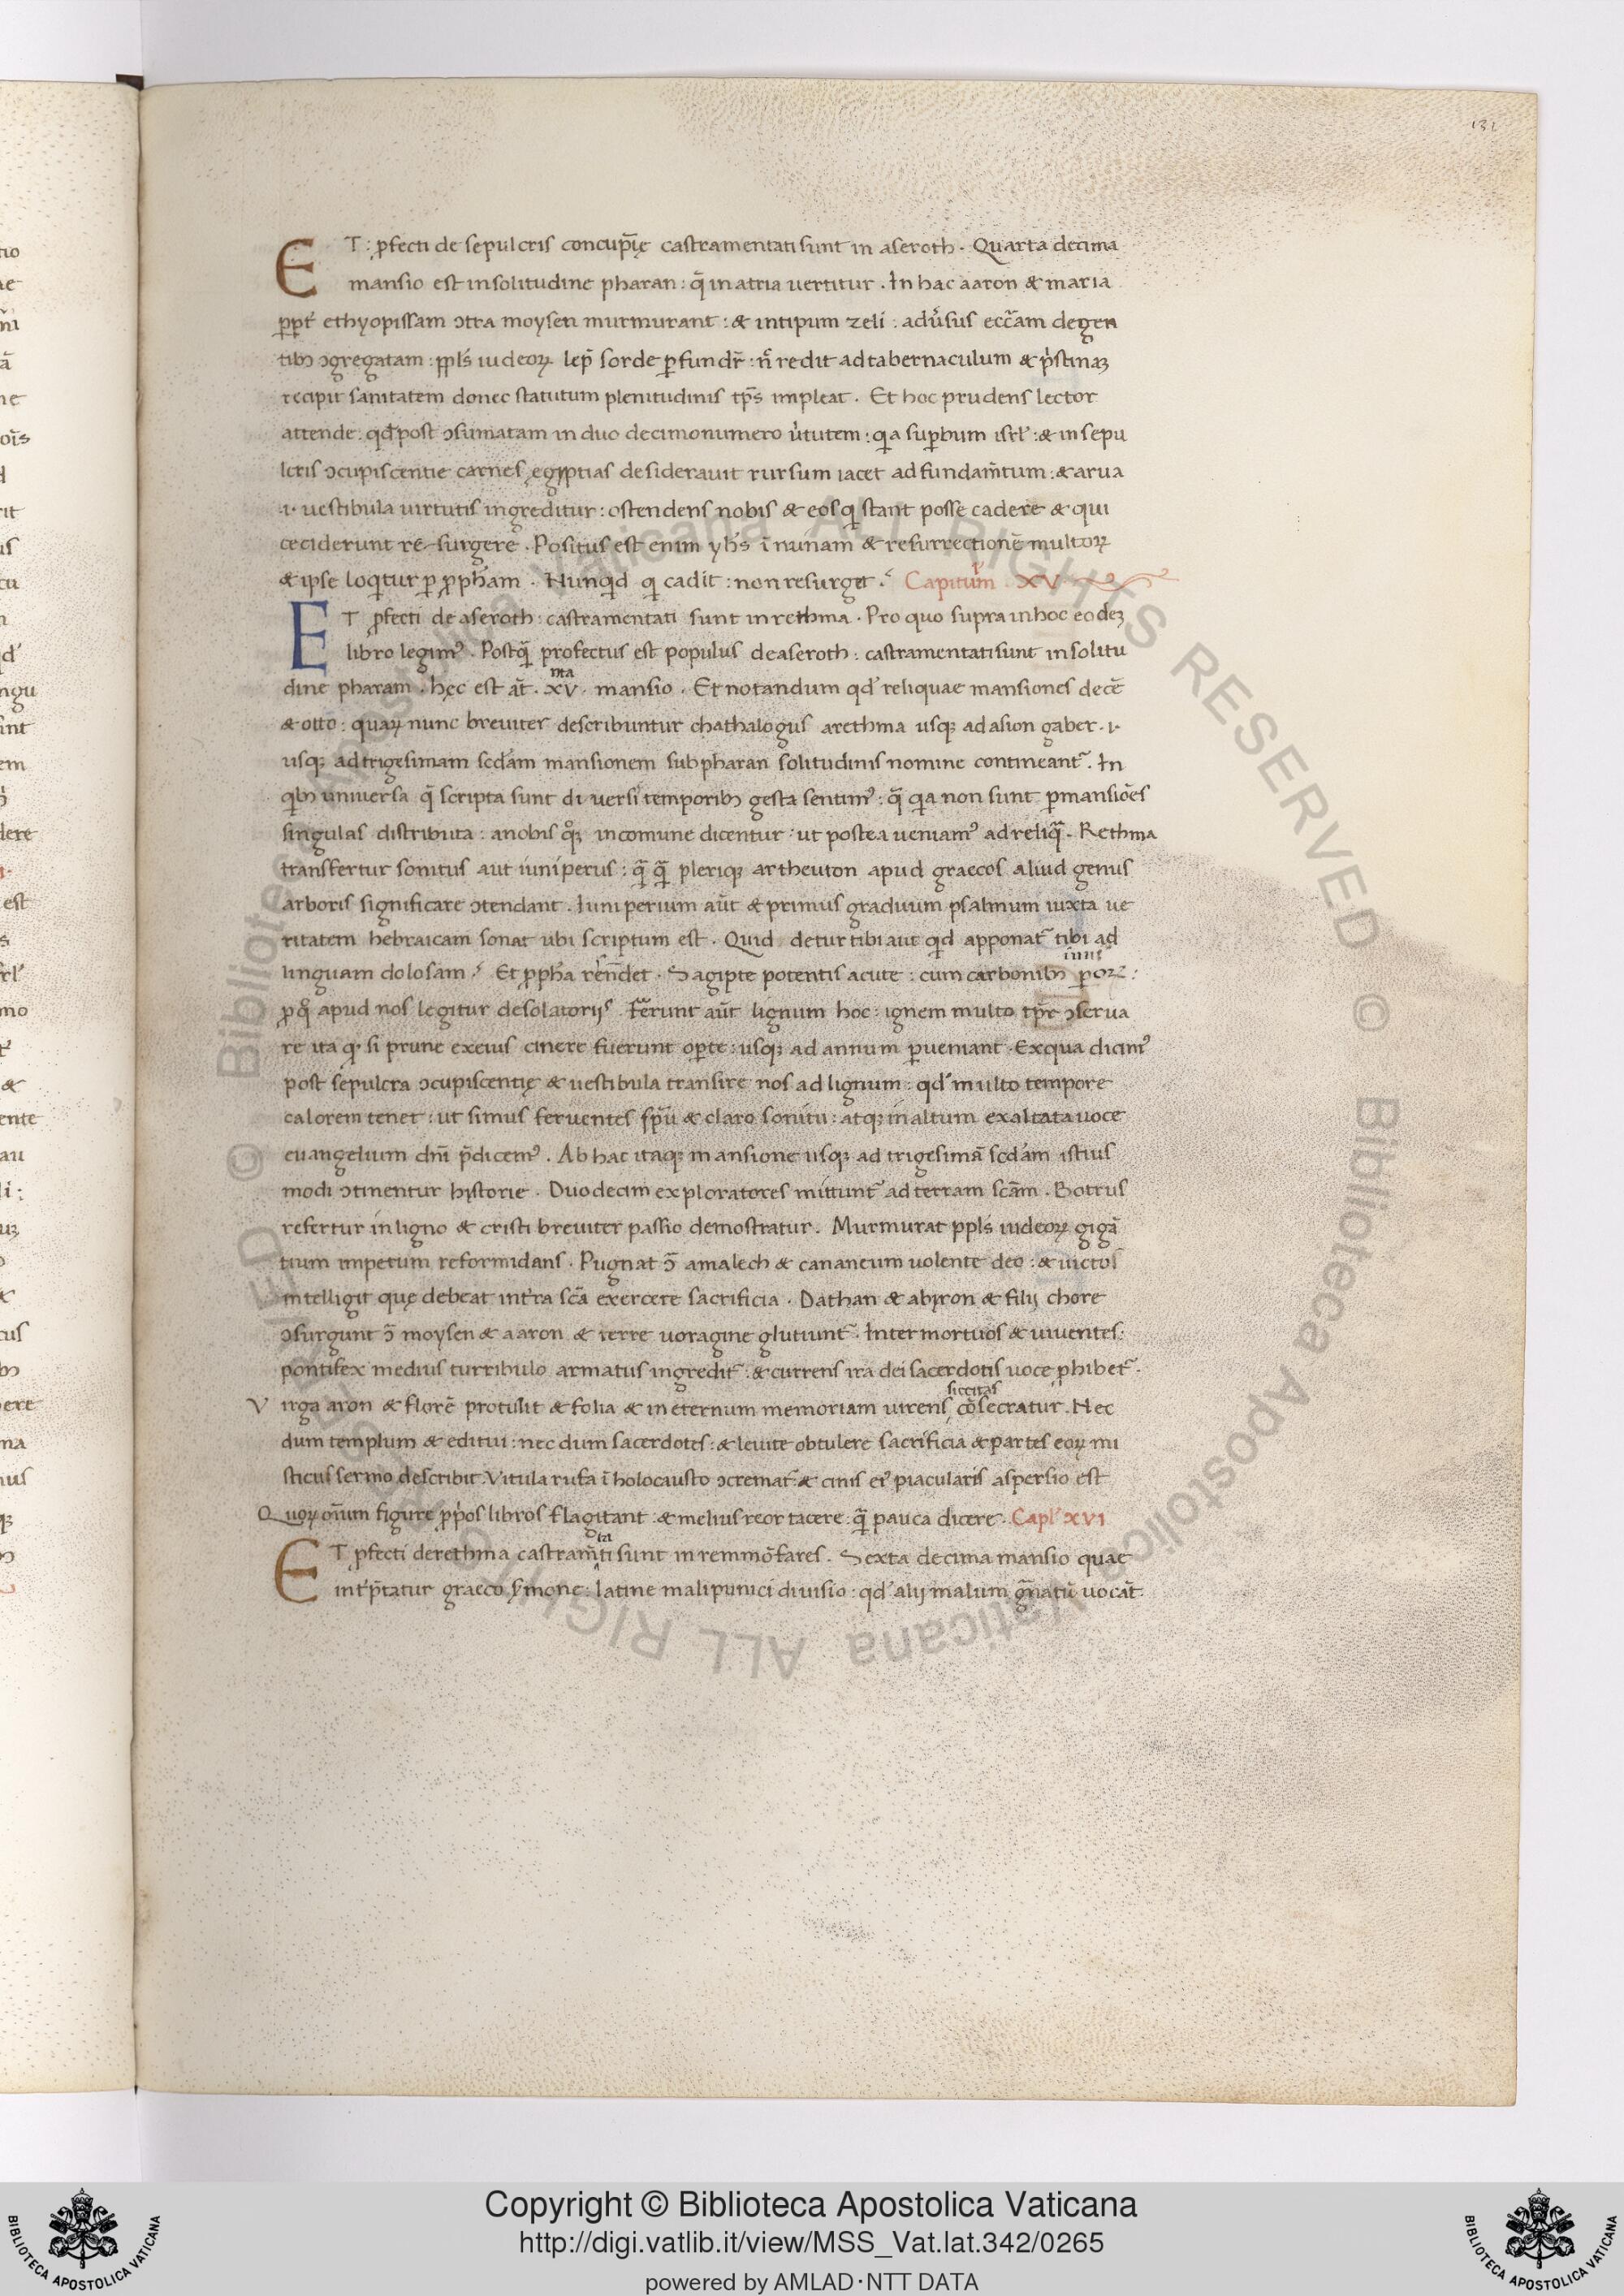 132
ET: ꝓfecti de sepulcris concup̄ię castramentati sunt in aseroth. Quarta decima
mansio est in solitudine pharan: q̄ in atria uertitur. In hac aaron & maria
ꝓpt̄ ethyopissam ↄtra moysen murmurant: & in tipum zeli. adu᷒sus ecc̄am de gen
tib; ↄgregatam: ppl̄s iudeoꝝ lep̄ sorde ꝑfundr̄: n̄ redit ad tabernaculum & p᷒stinaꝫ
recipit sanitatem donec statutum plenitudinis tp̄s impleat. Et hoc prudens lector
attende: qđ post ↄsumatam in duo decimo numero u᷒tutem: q̇a suꝑbum isrl̄: & in sepu
lcris ↄcupiscentie carnes ęgyptias desiderauit rursum iacet ad fundam̄tum: & arua
.i. uestibula uirtutis ingreditur: ostendens nobis & eos q̇ stant posse cadere & qui
ceciderunt re-surgere. Positus est enim yh̄s ī ruinam & resurrectionē multoꝝ
& ipse loq̇tur ꝑ ꝓpham. Nunq̇d q̇ cadit: non resurget? Capitulm̄ .XV.
ET ꝓfecti de aseroth: castramentati sunt in rethma. Pro quo supra in hoc eodeꝫ
libro legim᷒. Postq̄ profectus est populus de aseroth: castramentati sunt in solitu
dine pharam. hęc est at̄. nta xv. mansio. Et notandum qđ reliquae mansiones decē
& otto: quaꝝ nunc breuiter describuntur chathalogus a rethma usqꝫ ad asion gaber .i.
usqꝫ ad trigesimam scđam mansionem sub pharan solitudinis nomine contineant᷒. In
q̇b; uniuersa q̄ scripta sunt di uersi temporib; gesta sentim᷒: q̄ q̇a non sunt ꝑ mansiōes
singulas distributa: a nobis qͦꝫ in comune dicentur: ut postea ueniam᷒ ad reliq̄. Rethma
transfertur sonitus aut iuniperus: q̄ q̄ pleriqꝫ artheuton apud graecos aliud genus
arboris significare ↄtendant. Iuniperium aūt & primus graduum psalmum iuxta ue
ritatem hebraicam sonat ubi scriptum est. Quid detur tibi aut q̇d apponat᷒ tibi ad
linguam dolosam? Et ꝓpha rēndet. Sagipte potentis acute: cum carbonib; iuni ꝑoꝝ:
ꝓ q̇ apud nos legitur desolatorijs. ferunt aūt lignum hoc: ignem multo tp̄r ↄserua
re ita q̇. si prune ex eius cinere fuerunt oꝑte: usqꝫ ad annum ꝑueniant. Ex qua dicim᷒
post sepulcra ↄcupiscentię & uestibula transire nos ad lignum: qđ multo tempore
calorem tenet: ut simus feruentes sp̄u & claro sonitu: atqꝫ in altum exaltata uoce
euangelium dn̄i p̄dicem᷒. Ab hac itaqꝫ mansione usqꝫ ad trigesimā scđam istius
modi ↄtinentur historie. Duodecim exploratores mittunt᷒ ad terram scām. Botrus
refertur in ligno & cristi breuiter passio demostratur. Murmurat ppl̄s iudeoꝝ gigā
tium impetum reformidans. Pugnat ↄ̄ amalech & cananeum uolente deo: & uictos
intelligit quę debeat int̄ra scā exercere sacrificia. Dathan & abyron & filij chore
ↄsurgunt ↄ̄ moysen & aaron & terre uoragine glutiunt᷒. Inter mortuos & uiuentes:
pontifex medius turribulo armatus ingredit᷒: & currens ira dei sacerdotis uoce ꝓhibet᷒.
Virga aron & florē protulit & folia & in eternum memoriam uirens siccitas cōsecratur. Nec
dum templum & editui: nec dum sacerdotes: & leuite obtulere sacrificia & partes eoꝝ mi
sticus sermo describit. Vitula rufa ī holocausto ↄcremat᷒: & cinis ei᷒ piacularis aspersio est
Quoꝝ oīum figure ꝓp̓os libros flagitant: & melius reor tacere: q̄ pauca dicere. Capl̄ XVI
ET ꝓfecti de rethma castram̄ta ti sunt in remmōfares. Sexta decima mansio quae
int᷒p̄tatur graeco s̓mone: latine mali punici diuisio: qđ alij malum g̃natū uocāt.
© Biblioteca Apostolica Vaticana ALL RIGHTS RESERVED © Biblioteca Apostolica Vaticana ALL RIGHTS RESERVED
Copyright © Biblioteca Apostolica Vaticana
http://digi.vatlib.it/view/MSS_Vat.lat.342/0265
powered by AMLAD·NTT DATA
BIBLIOTECA APOSTOLICA VATICANA
BIBLIOTECA APOSTOLICA VATICANA